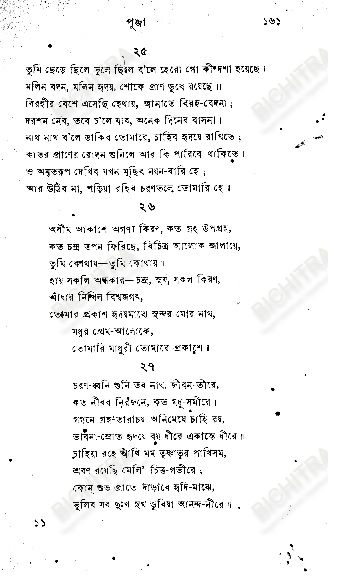 পূজা ১৬১
২৫
তুমি ছেড়ে ছিলে ভুলে ছিলে ব'লে হেরো গো কী দশা হয়েছে।
মলিন বদন, মলিন হৃদয়, শোকে প্রাণ ডুবে রয়েছে॥
বিরহীর বেশে এসেছি হেথায়, জানাতে বিরহ-বেদনা;
দরশন নেব, তবে চ'লে যাব, অনেক দিনের বাসনা।
নাথ নাথ ব'লে ডাকিব তোমারে, চাহিব হৃদয়ে রাখিতে;
কাতর প্রাণের রোদন শুনিলে আর কি পারিবে থাকিতে।
ও অমৃতরূপ দেখিব যখন মুছিব নয়ন-বারি হে;
আর উঠিব না, পড়িয়া রহিব চরণতলে তোমারি হে॥
২৬
অসীম আকাশে অগণ্য কিরণ, কত গ্রহ উপগ্রহ,
কত চন্দ্র তপন ফিরিছে, বিচিত্র আলোক জালায়ে,
তুমি কোথায়—তুমি কোথায়॥
হায় সকলি অন্ধকার—চন্দ্র, সূর্য, সকল কিরণ,
আঁধার নিখিল বিশ্বজগৎ,
তোমার প্রকাশ হৃদয়মাঝে সুন্দর মোর নাথ,
মধুর প্রেম-আলোকে,
তোমারি মাধুরী তোমারে প্রকাশে॥
২৭
চরণ-ধ্বনি শুনি তব নাথ, জীবন-তীরে,
কত নীরব নিরজনে, কত মধু-সমীরে॥
গগনে গ্রহ-তারাচয় অনিমেষে চাহি রয়,
ভাবনা-স্রোত হৃদয়ে বয় ধীরে একান্তে ধীরে॥
চাহিয়া রহে আঁখি মম তৃষ্ণাতুর পাখিসম,
শ্রবণ রয়েছি মেলি' চিত্ত-গভীরে;
কোন্ শুভ প্রাতে দাঁড়াবে হৃদি-মাঝে,
ভুলিব সব দুঃখ সুখ ডুবিয়া আনন্দ-নীরে॥
১১